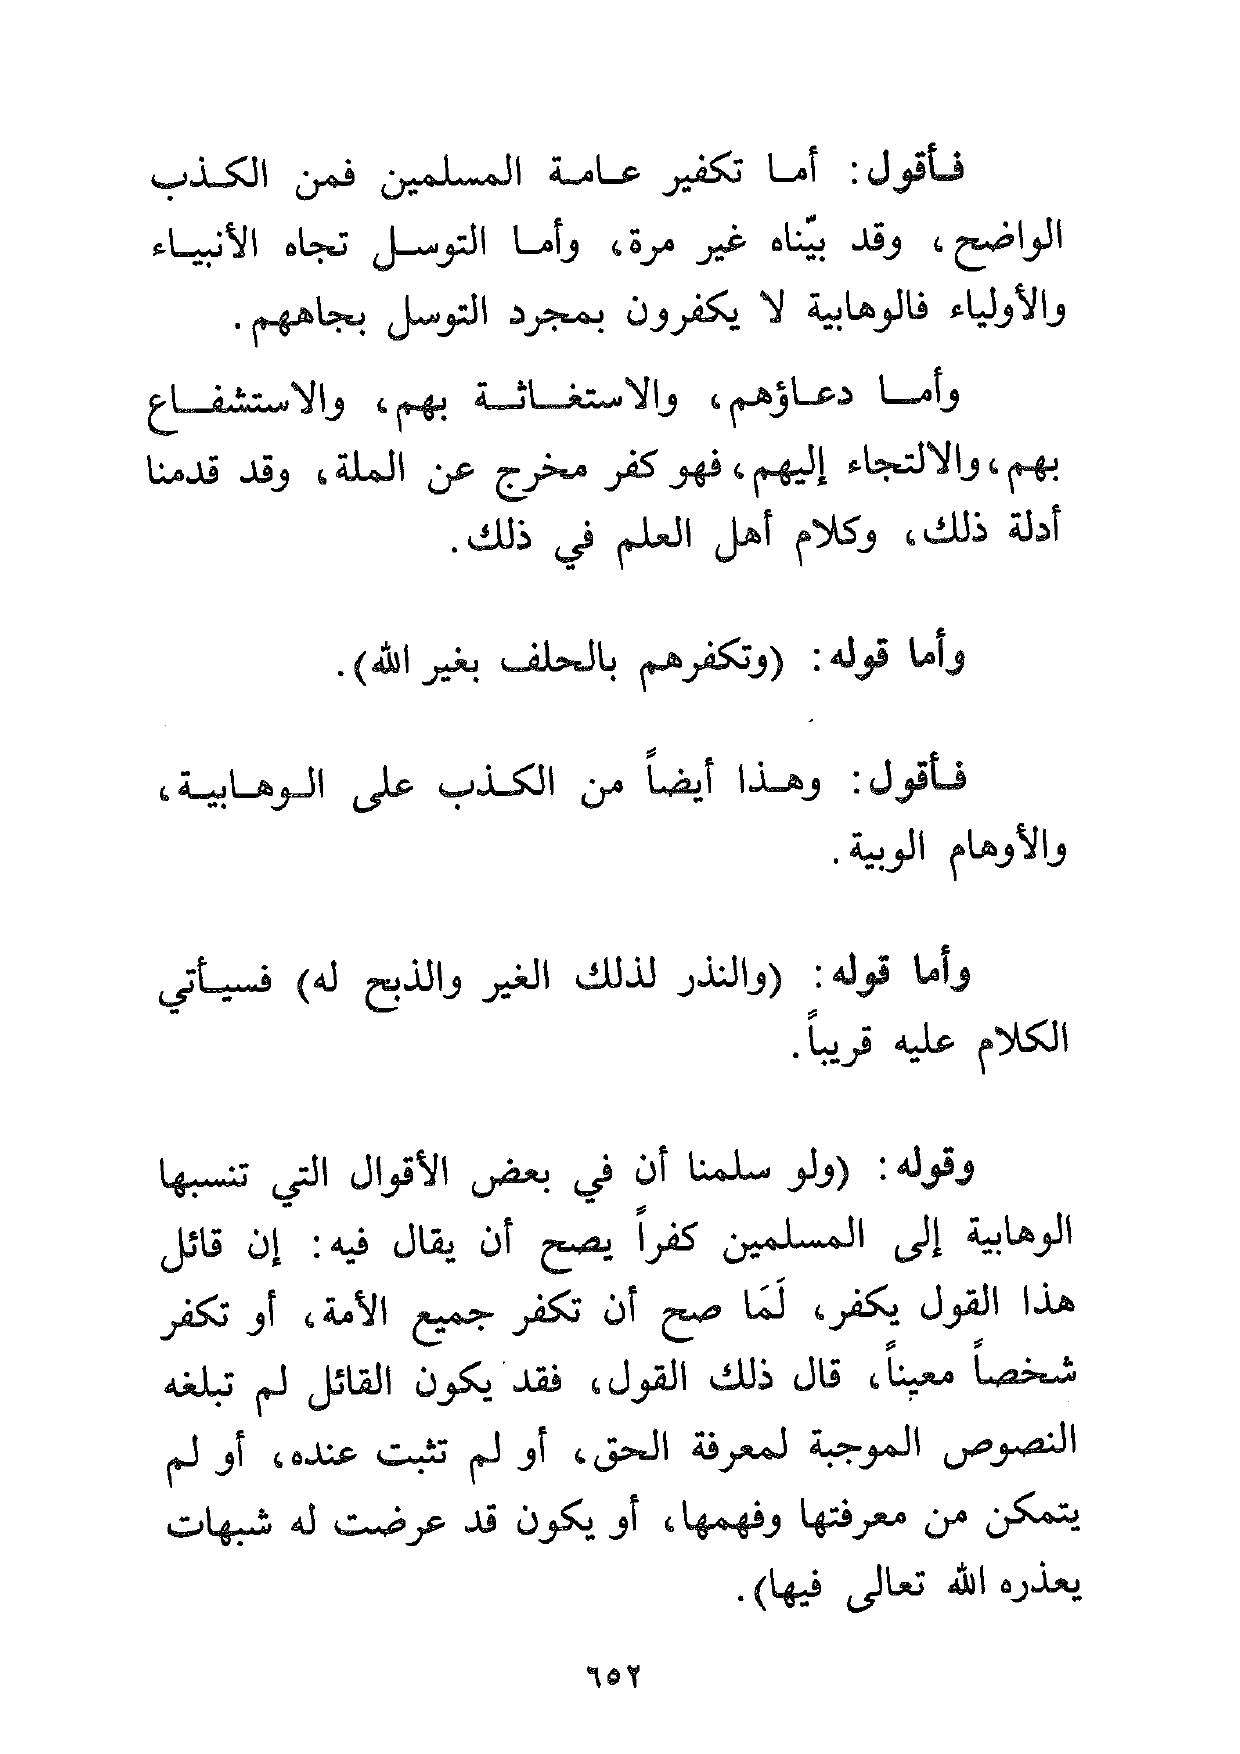 فأقول: أما تكفير عامة المسلمين فمن الكذب
الواضح، وقد بيّناه غير مرة، وأما التوسل تجاه الأنبياء
والأولياء فالوهابية لا يكفرون بمجرد التوسل بجاههم.
وأما دعاؤهم، والاستغاثة بهم، والاستشفاع
بهم، والالتجاء إليهم، فهو كفر مخرج عن الملة، وقد قدمنا
أدلة ذلك، وكلام أهل العلم في ذلك.
وأما قوله: (وتكفرهم بالحلف بغير الله).
فأقول: وهذا أيضاً من الكذب على الوهابية،
والأوهام الوبية.
وأما قوله: (والنذر لذلك الغير والذبح له) فسيأتي
الكلام عليه قريباً.
وقوله: (ولو سلمنا أن في بعض الأقوال التي تنسبها
الوهابية إلى المسلمين كفراً يصح أن يقال فيه: إن قائل
هذا القول يكفر، لَمَا صح أن تكفر جميع الأمة، أو تكفر
شخصاً معيناً، قال ذلك القول، فقد يكون القائل لم تبلغه
النصوص الموجبة لمعرفة الحق، أو لم تثبت عنده، أو لم
يتمكن من معرفتها وفهمها، أو يكون قد عرضت له شبهات
يعذره الله تعالى فيها).
٦٥٢